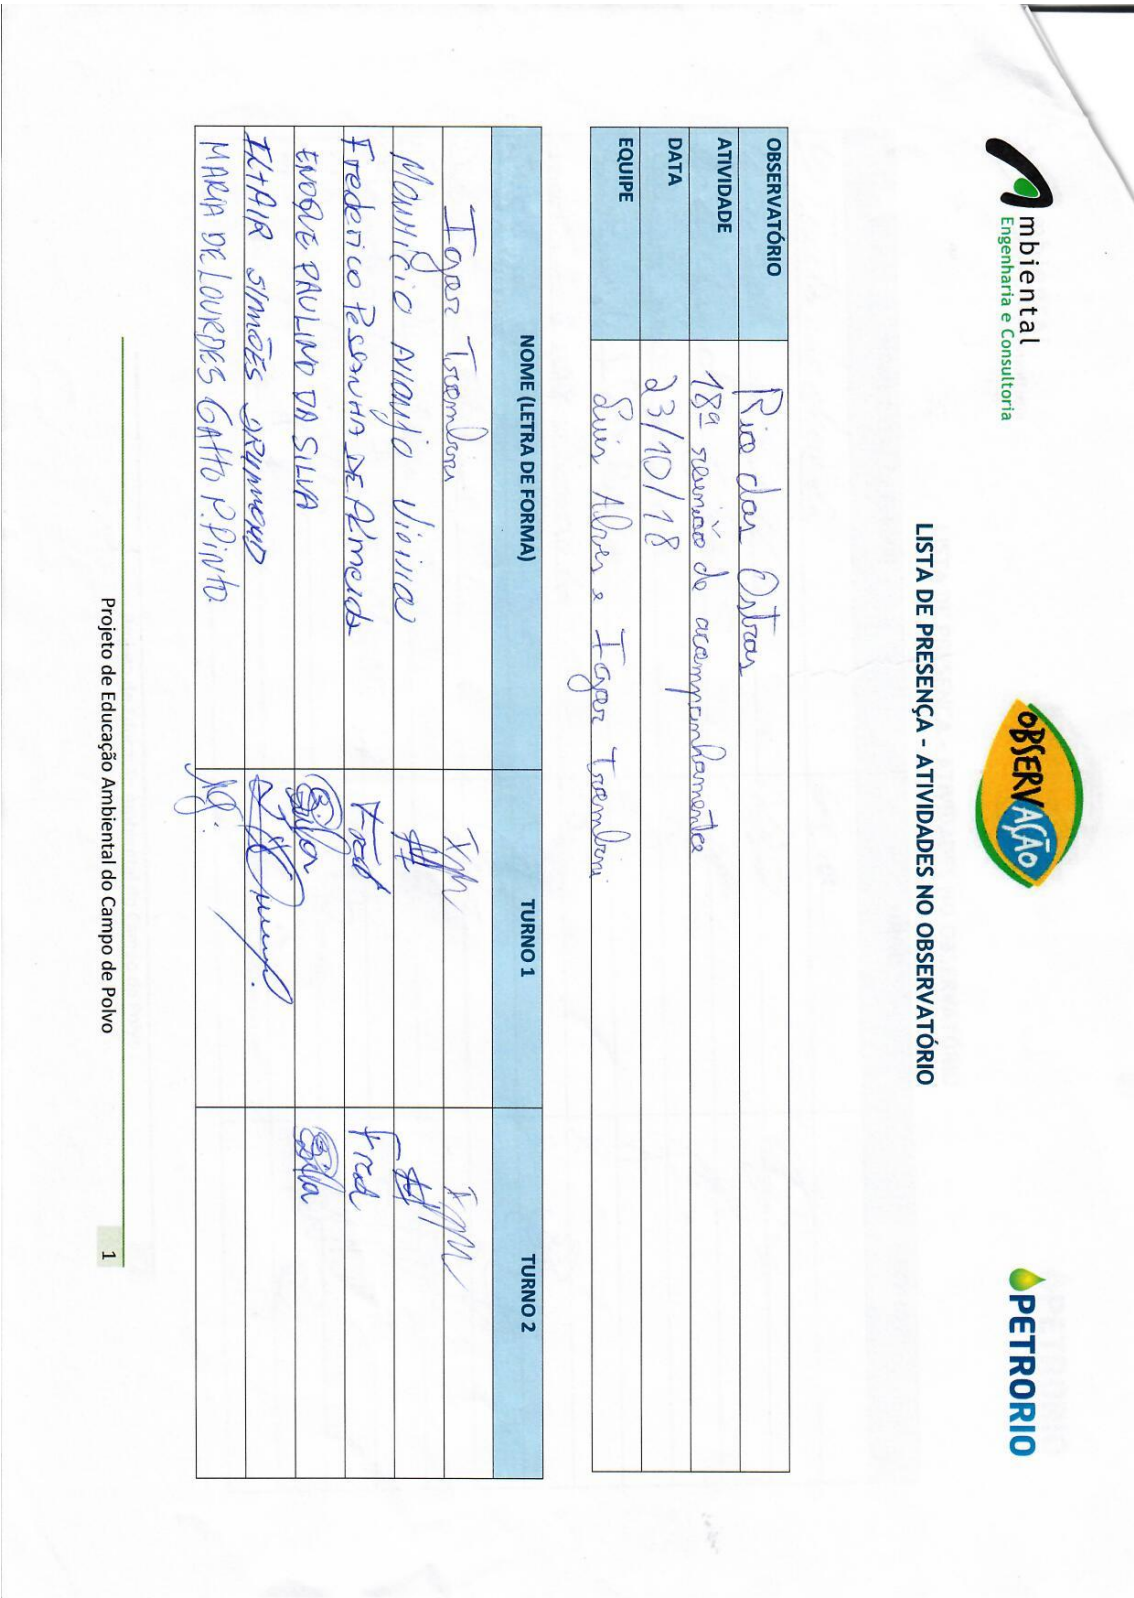 Ambiental
Engenharia e Consultoria
OBSERVAÇÃO
PETRORIO
LISTA DE PRESENÇA - ATIVIDADES NO OBSERVATÓRIO
OBSERVATÓRIO Rio das Ostras
ATIVIDADE 18ª reunião de acompanhamento
DATA 23/10/18
EQUIPE Luis Alves e Igor Trombini
NOME (LETRA DE FORMA) TURNO 1 TURNO 2
Igor Trombini
Mauricio Araujo Vieira
Frederico Pessanha de Almeida Fred Fred
ENOQUE PAULINO DA SILVA Silva Silva
SIMÕES DRUMMOND
MARIA DE LOURDES GATTO P. PINTO
Projeto de Educação Ambiental do Campo de Polvo 1